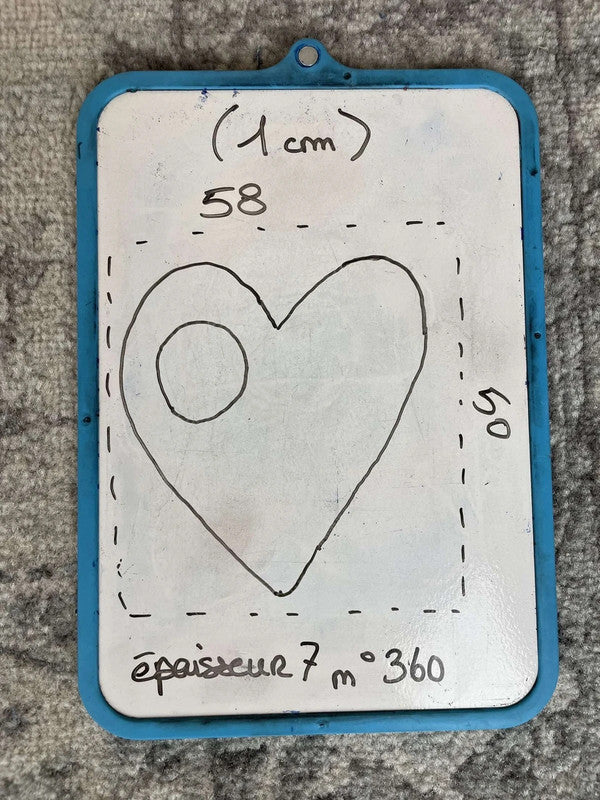 (1 cm)
58
50
épaisseur 7 m° 360